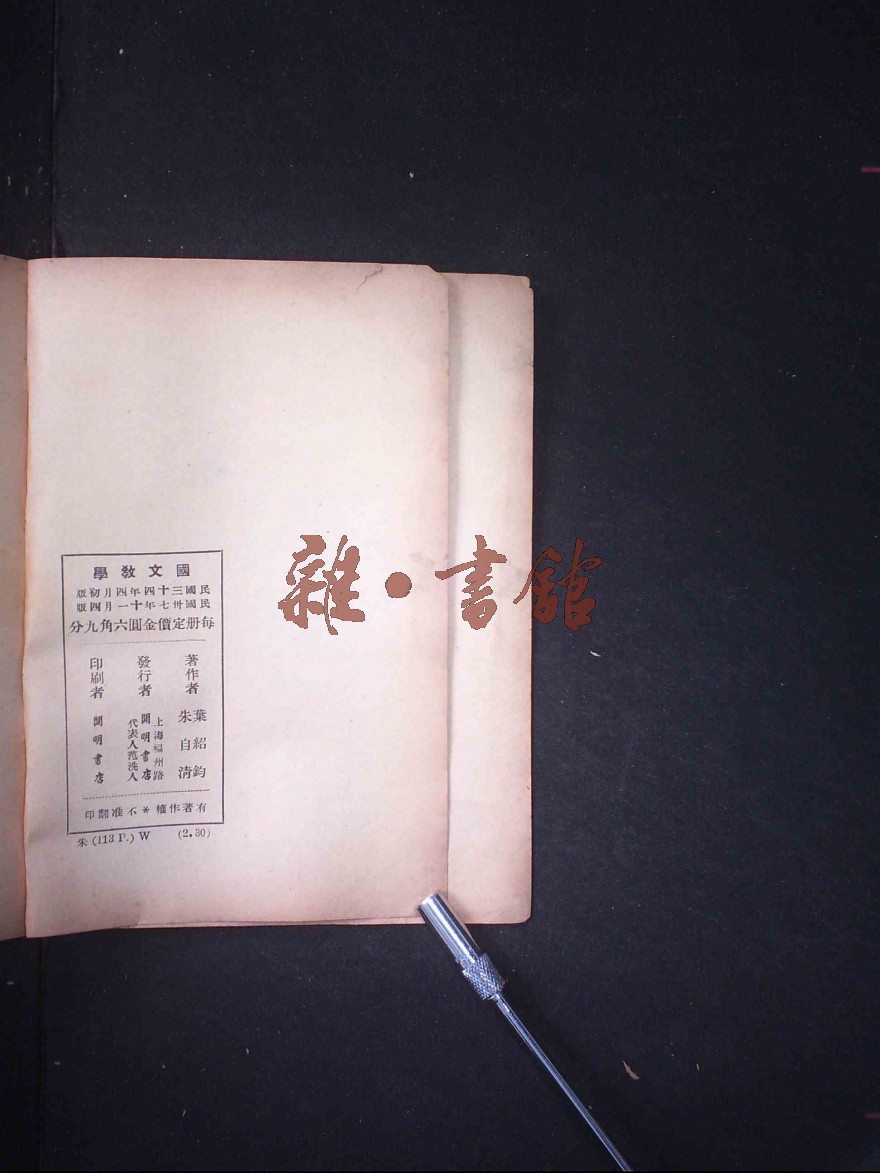 國文教學
民國三十四年四月初版
民國卅七年十一月四版
每册定價金圓六角九分
著作者
葉紹鈞
朱自清
發行者
上海福州路
開明書店
代表人范洗人
印刷者
開明書店
有著作權＊不准翻印
朱(113 P.) W (2.30)
雜·書館